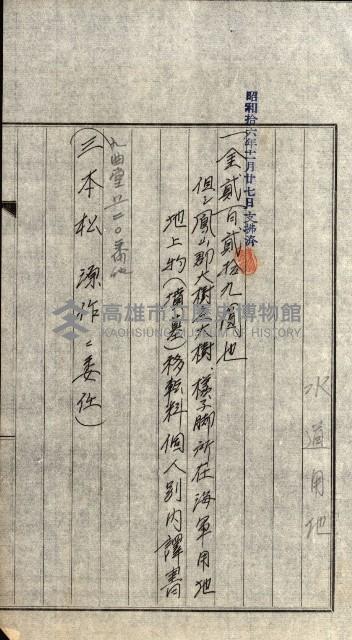 水道用地
昭和拾六年十一月廿七日支拂済
一金貳百貳拾九圓也
但シ鳳山郡大樹庄大樹、檨子脚所在海軍用地
地上物(墳墓)移転料個人別内譯書
九曲堂
番地
(三本松源作ニ委任)
高雄市立歷史博物館
KAOHSIUNG MUSEUM OF HISTORY